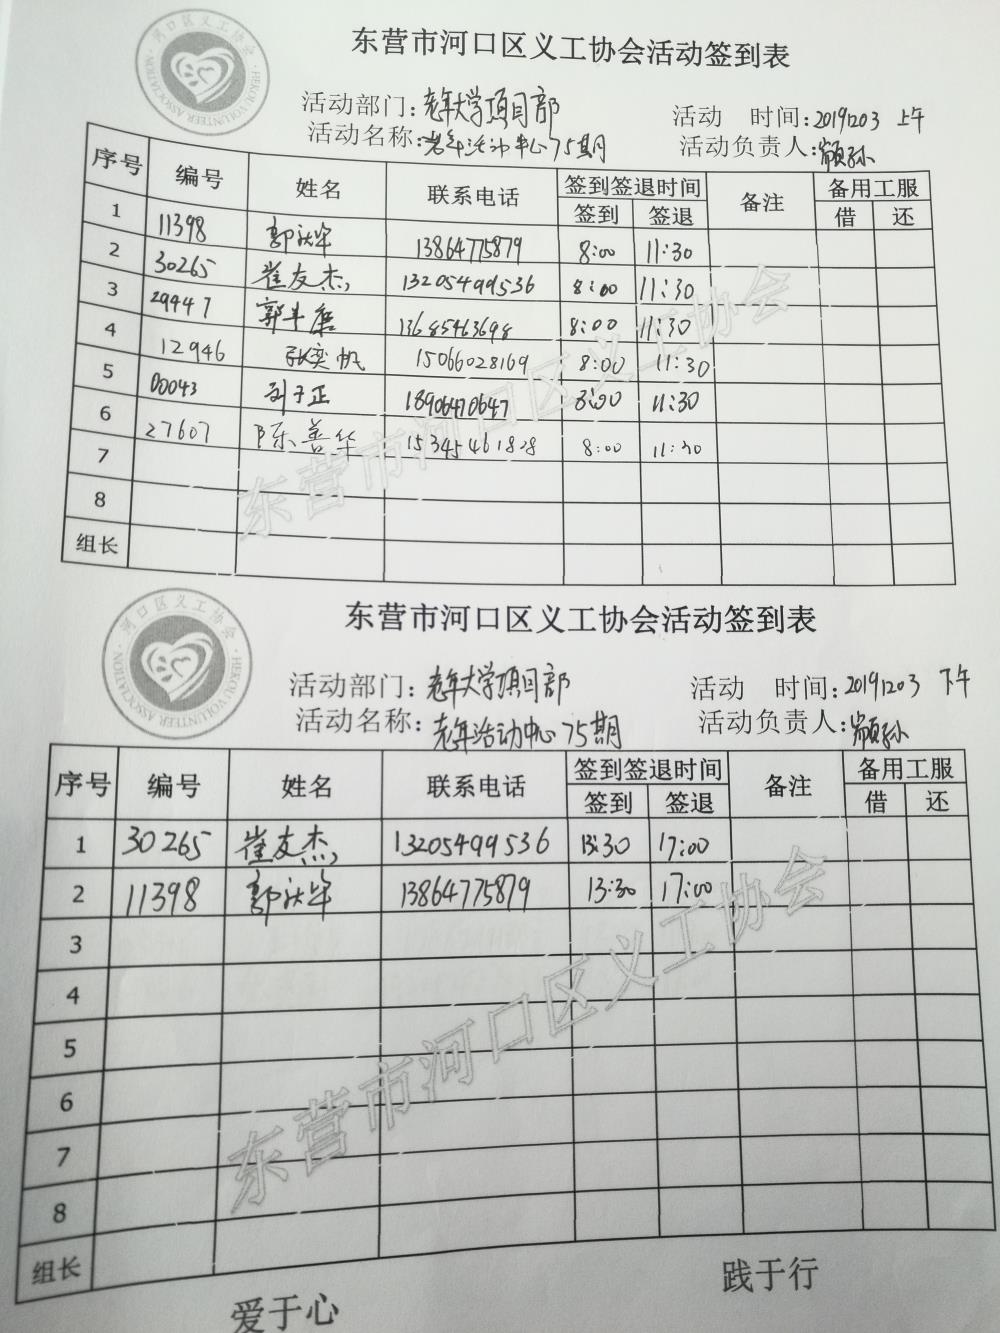 河口区义工协会
HEKOU VOLUNTEER ASSOCIATION
东营市河口区义工协会活动签到表
活动部门：老年大学项目部 活动 时间：20191203 上午
活动名称：老年活动中心75期 活动负责人：
序号 编号 姓名 联系电话 签到签退时间 备注 备用工服
签到 签退 借 还
1 11398 郭 13864775879 8:00 11:30
2 30265 崔友杰 13205499536 8:00 11:30
3 29447 郭 13685463698 8:00 11:30
4 12946 张奕帆 15066028169 8:00 11:30
5 00043 刘子正 18906470647 8:00 11:30
6 27607 陈善华 15345461828 8:00 11:30
7
8
组长
东营市河口区义工协会
河口区义工协会
HEKOU VOLUNTEER ASSOCIATION
东营市河口区义工协会活动签到表
活动部门：老年大学项目部 活动 时间：20191203 下午
活动名称：老年活动中心75期 活动负责人：
序号 编号 姓名 联系电话 签到签退时间 备注 备用工服
签到 签退 借 还
1 30265 崔友杰 13205499536 13:30 17:00
2 11398 郭 13864775879 13:30 17:00
3
4
5
6
7
8
组长
东营市河口区义工协会
爱于心 践于行